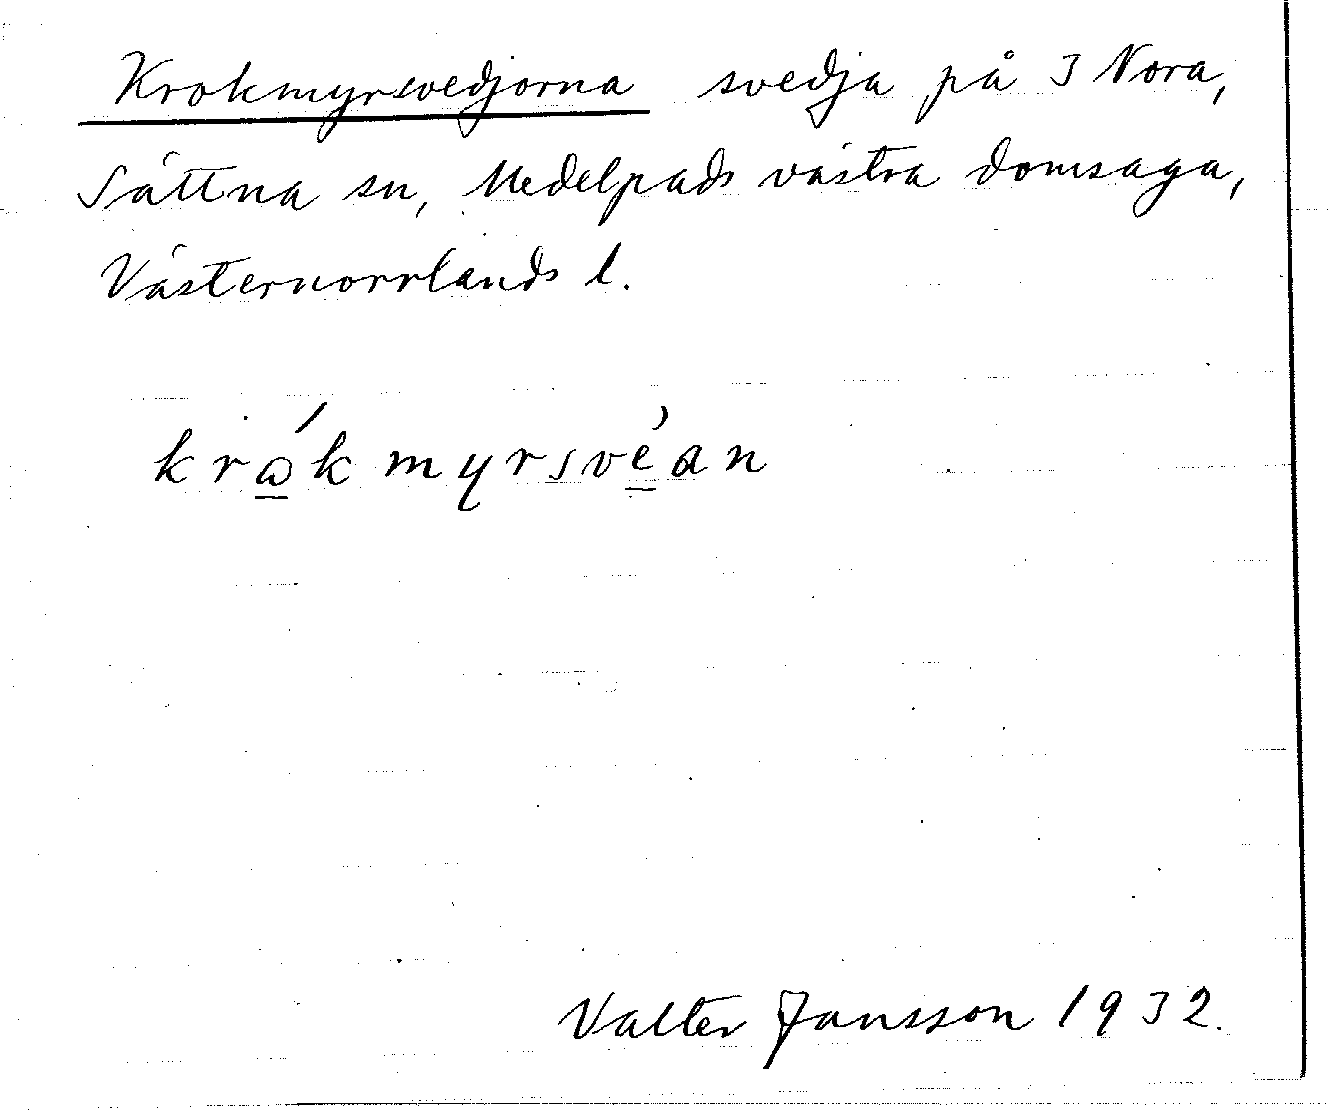 Krokmyrsvedjorna svedja på 3 Nora,
Sättna sn, Medelpads västra domsaga,
Västernorrlands l.
krώ̲kmyrsvè̲an
Valter Jansson 1932.